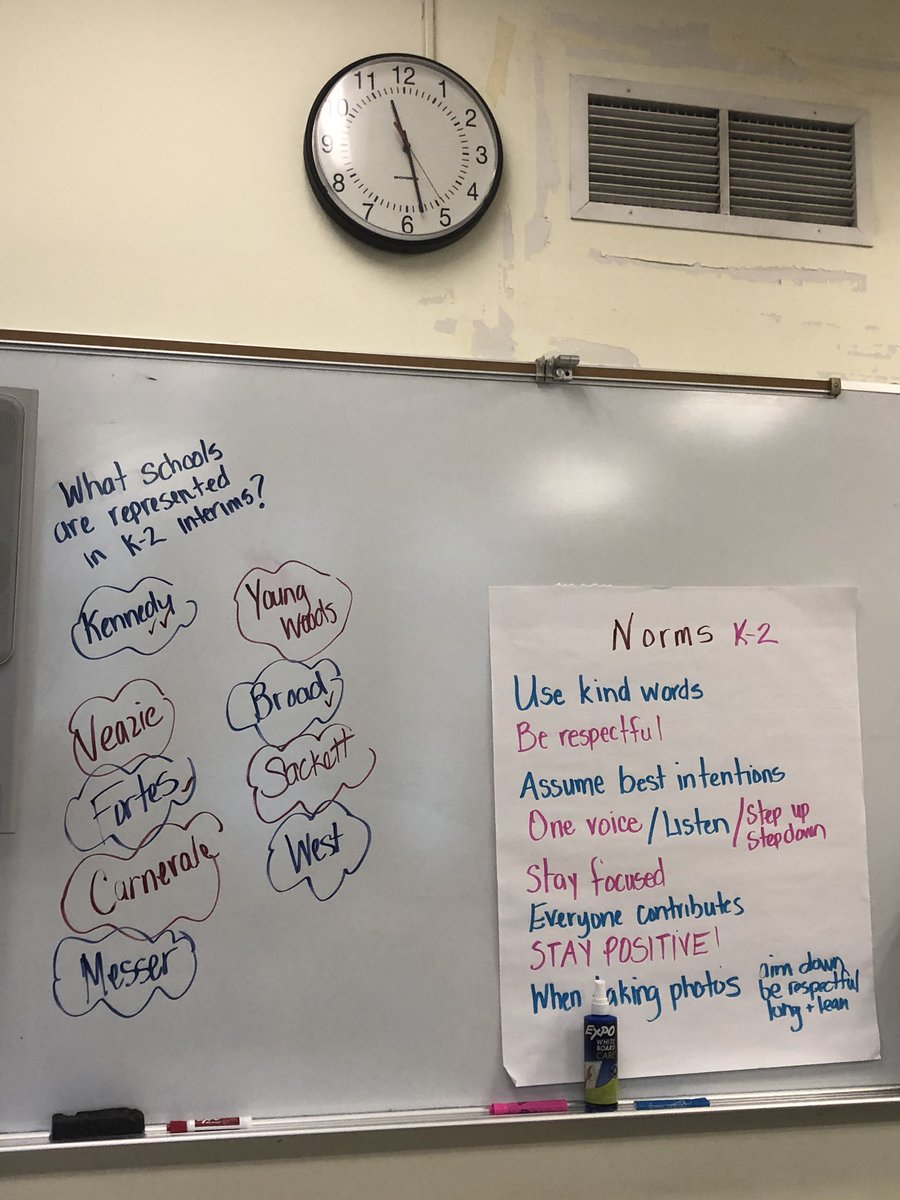 11 12 1
10 2
9 3
8 4
7 6 5
What schools
are represented
in K-2 Interims?
Kennedy
Young
Woods
Veazie
Broad
Fortes
Sackett
Carnerale
West
Messer
Norms K-2
Use kind words
Be respectful
Assume best intentions
One voice / Listen / Step up
Step down
Stay focused
Everyone contributes
STAY POSITIVE!
When aking photos
aim down
be respectful
long + lean
EXPO
WHITE
BOARD
CARE